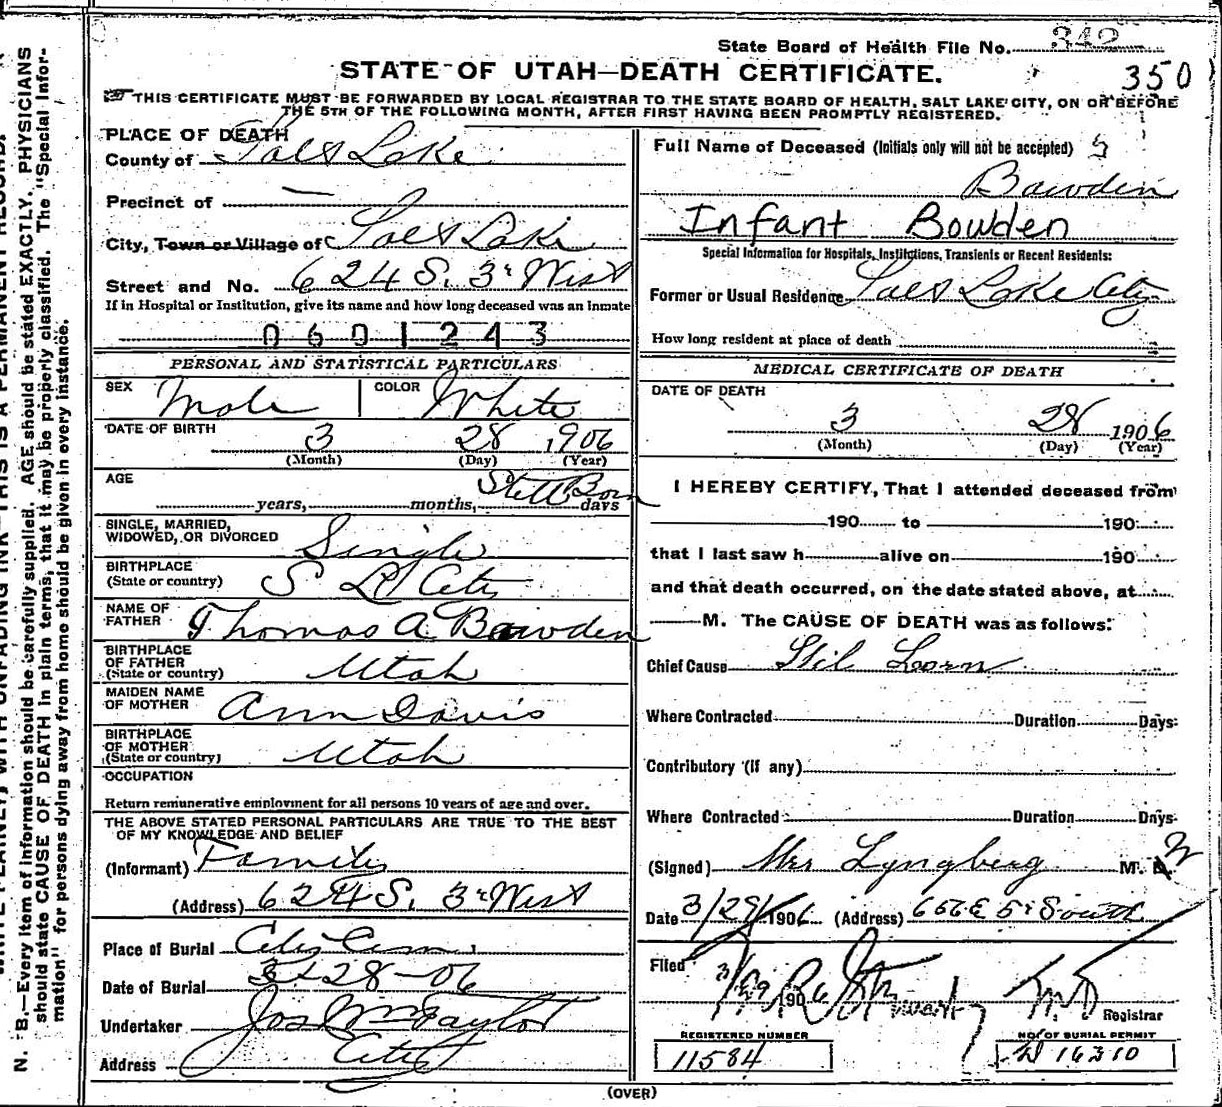 State Board of Health File No. 342
STATE OF UTAH—DEATH CERTIFICATE.
350
THIS CERTIFICATE MUST BE FORWARDED BY LOCAL REGISTRAR TO THE STATE BOARD OF HEALTH, SALT LAKE CITY, ON OR BEFORE
THE 5TH OF THE FOLLOWING MONTH, AFTER FIRST HAVING BEEN PROMPTLY REGISTERED.
PLACE OF DEATH
County of Salt Lake
Precinct of —
City, Town or Village of Salt Lake
Street and No. 624 S. 3r West
If in Hospital or Institution, give its name and how long deceased was an inmate
0601243
PERSONAL AND STATISTICAL PARTICULARS
SEX Male COLOR White
DATE OF BIRTH 3 28 1906
(Month) (Day) (Year)
AGE Still Born
years, months, days
SINGLE, MARRIED,
WIDOWED, OR DIVORCED Single
BIRTHPLACE
(State or country) S L City
NAME OF
FATHER Thomas A. Bowden
BIRTHPLACE
OF FATHER
(State or country) Utah
MAIDEN NAME
OF MOTHER Ann Davis
BIRTHPLACE
OF MOTHER
(State or country) Utah
OCCUPATION
Return remunerative employment for all persons 10 years of age and over.
THE ABOVE STATED PERSONAL PARTICULARS ARE TRUE TO THE BEST
OF MY KNOWLEDGE AND BELIEF
(Informant) Family
(Address) 624 S. 3r West
Place of Burial City Cem.
Date of Burial 3-28-06
Undertaker Jos Wm Taylor
Address City
Full Name of Deceased (Initials only will not be accepted)
Bowden
Infant Bowden
Special Information for Hospitals, Institutions, Transients or Recent Residents:
Former or Usual Residence Salt Lake City
How long resident at place of death
MEDICAL CERTIFICATE OF DEATH
DATE OF DEATH
3 28 1906
(Month) (Day) (Year)
I HEREBY CERTIFY, That I attended deceased from
190 to 190
that I last saw h alive on 190
and that death occurred, on the date stated above, at
M. The CAUSE OF DEATH was as follows:
Chief Cause Stil Born
Where Contracted Duration Days
Contributory (if any)
Where Contracted Duration Days
(Signed) Mrs Lyngberg M. W
Date 3/29/1906 (Address) 656 E 5t South
Filed 3/29 1906 M.D
Registrar
REGISTERED NUMBER
11584
NO. OF BURIAL PERMIT
16310
(OVER)
N. B.—Every item of information should be carefully supplied. AGE should be stated EXACTLY. PHYSICIANS
should state CAUSE OF DEATH in plain terms, that it may be properly classified. The "Special Infor-
mation" for persons dying away from home should be given in every instance.